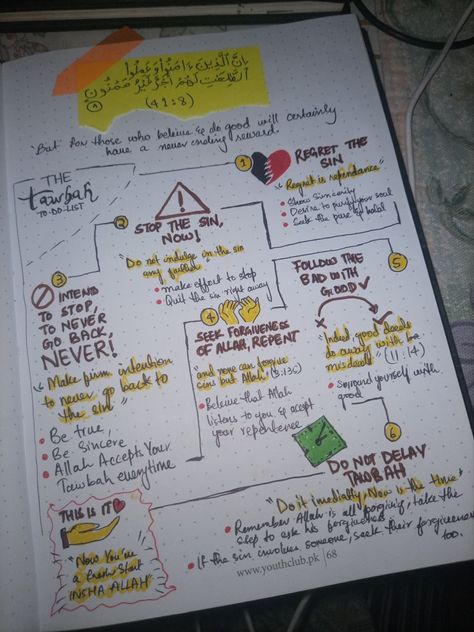 إِنَّ الَّذِينَ ءَامَنُوا وَعَمِلُوا
الصَّٰلِحَٰتِ لَهُمْ أَجْرٌ غَيْرُ مَمْنُونٍ
٨
(41:8)
"But for those who believe & do good will certainly
have a never ending reward.
THE
Tawbah
TO-DO-LIST
1
REGRET THE
SIN
"Regret is rependance"
• Show Simcirity
• Desire to purify your soul
• Seek the pure & halal
2
STOP THE SIN,
NOW!
"Do not indulge in the sin
any further
• Make effort to stop
• Quit the sin right away
3
INTEND
TO STOP,
TO NEVER
GO BACK,
NEVER!
"Make firm intention
to never go back to
the sin"
• Be true,
• Be Sincere
• Allah Accepts Your
Tawbah everytime
4
SEEK FORGIVENESS
OF ALLAH, REPENT
"and none can forgive
sins but Allah" (3:135)
• Beleive that Allah
listens to you & accept
your repentence
5
FOLLOW THE
BAD WITH
GOOD
"Indeed good deeds
do away with the
misdeeds" (11:14)
• Surround yourself with
good
6
DO NOT DELAY
TAWBAH
"Do it imediatly, Now is the time"
• Remember Allah is all forgiving, take the
step to ask his forgiveness
• If the sin involves someone, seek their forgiveness
too.
THIS IS IT
"Now You're
a Fresh Start
INSHA ALLAH"
www.youthclub.pk | 68